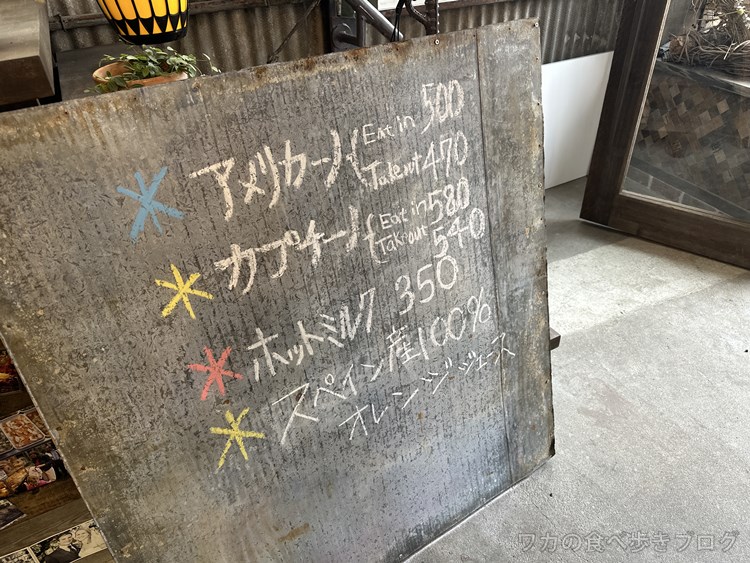 アメリカーノ{Eat in 500
Takeout 470
カプチーノ{Eat in 580
Takeout 540
ホットミルク 350
スペイン産100%
オレンジジュース
ワカの食べ歩きブログ